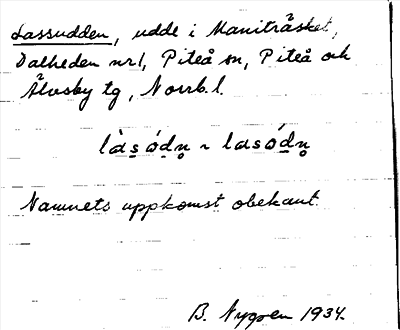 Lassudden, udde i Maniträsket,
Dalheden nr 1, Piteå sn, Piteå och
Älvsby tg, Norrb. l.
là̀s̠ód̠n̥ ~ lasód̠n̥
Namnets uppkomst obekant.
B. Nygren 1934.